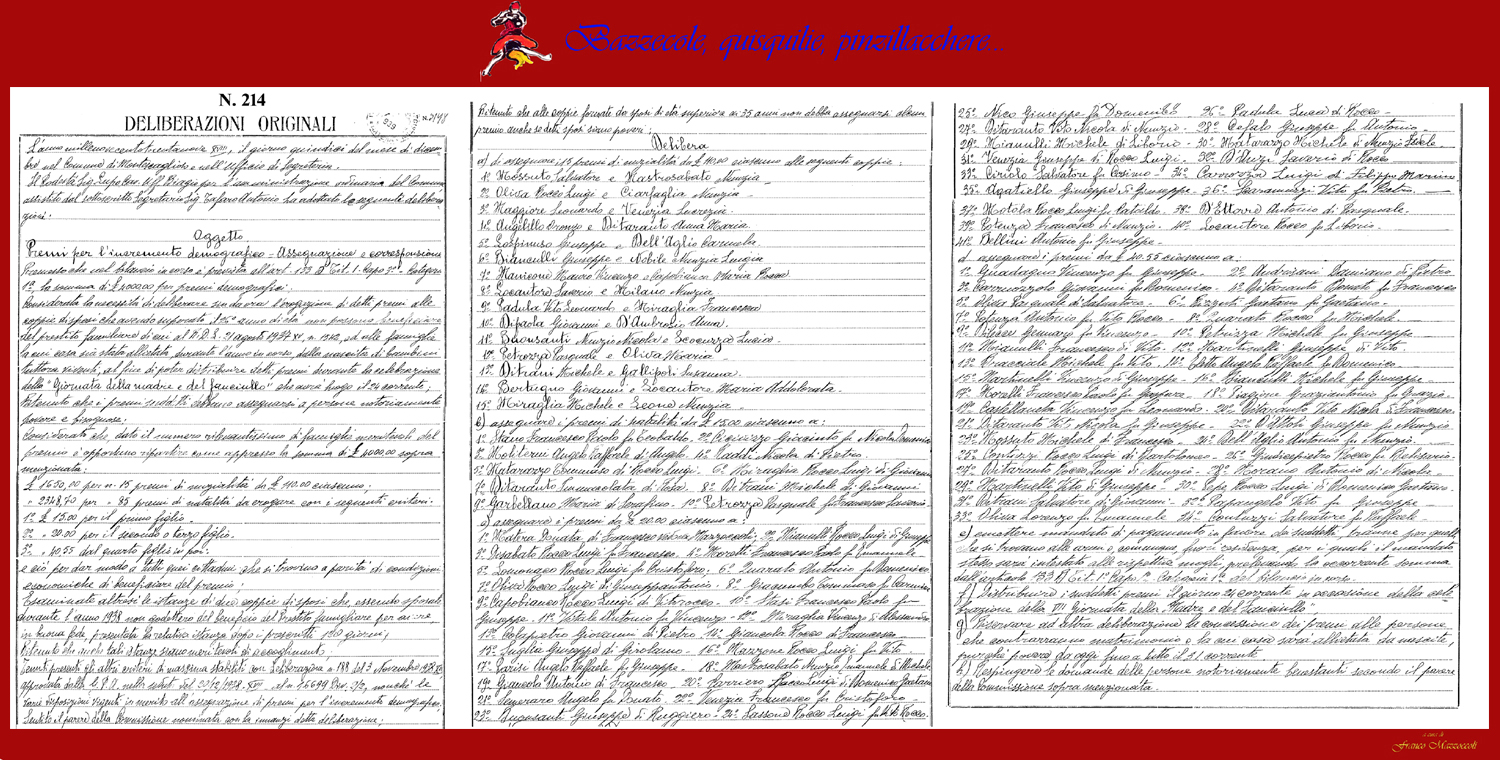 Bazzecole, quisquilie, pinzillacchere...
N. 214
DELIBERAZIONI ORIGINALI
L'anno millenovecentotrentanove XVIII, il giorno quindici del mese di dicem-
bre nel Comune di Montescaglioso e nell'Ufficio di Segreteria.
Il Podestà Sig. Lupo Cav. Uff. Biagio per l'amministrazione ordinaria del Comune
assistito dal sottoscritto Segretario Sig. Tafaro Antonio ha adottato la seguente delibera-
zione:
Oggetto
Premi per l'incremento demografico - Assegnazione e corresponsione
Premesso che nel bilancio in corso è prevista all'art. 133 Tit. 1° Capo 7° Categoria
1°, la somma di £ 4000.00 per premi demografici;
Considerata la necessità di deliberare sin da ora l'erogazione di detti premi alle
coppie di sposi che avendo superato il 25° anno di età non possono beneficiare
del prestito familiare di cui al R.D.L. 21 agosto 1937 XV, n. 1542, ed alle famiglie
la cui casa sia stata allietata, durante l'anno in corso, dalla nascita di bambini
tuttora viventi, al fine di poter distribuire detti premi durante la celebrazione
della "Giornata della madre e del fanciullo" che avrà luogo il 24 corrente;
Ritenuto che i premi suddetti debbano assegnarsi a persone notoriamente
povere e bisognose;
Considerato che, dato il numero rilevantissimo di famiglie meritevoli del
premio è opportuno ripartire come appresso la somma di £ 4000.00 sopra
menzionata:
£ 1650,00 per n. 15 premi di nuzialità da £ 110.00 ciascuno.
" 2348,70 per " 85 premi di natalità da erogare con i seguenti criteri:
1° £ 15.00 per il primo figlio.
2° " 20.00 per il secondo o terzo figlio.
3° " 40.55 dal quarto figlio in poi.
e ciò per dar modo a tutti quei che si trovino a parità di condizioni
economiche di beneficiare del premio;
Esaminate altresì le istanze di due coppie di sposi che, essendo sposate
durante l'anno 1938 non godettero del beneficio del Prestito famigliare per avere
in buona fede, presentata la relativa istanza dopo i presenti 120 giorni;
Ritenuto che anche tali istanze siano meritevoli di accoglimento;
Tenuti presenti gli altri criteri di massima stabiliti con deliberazione n. 188 del 3 Novembre 1938 XVII
approvata dalla G.P.A. nella seduta del 20/12/1938 XVII al n. 26699 Div. 1/2, nonché le
varie disposizioni vigenti in merito all'assegnazione di premi per l'incremento demografico.
Sentito il parere della Commissione nominata con la innanzi detta deliberazione;
Ritenuto che alle coppie formate da sposi di età superiore ai 35 anni non debba assegnarsi alcun
premio anche se detti sposi siano poveri;
Delibera
a) di assegnare, i 15 premi di nuzialità da £ 110.00 ciascuno alle seguenti coppie:
1° Mossuto Salvatore e Mastrosabato Nunzia
2° Oliva Rocco Luigi e Ciarfaglia Nunzia
3° Maggiore Leonardo e Venezia Lucrezia
4° Angelillo Oronzo e Ditaranto Anna Maria.
5° Lospinuso Giuseppe e Dell'Aglio Carmela.
6° Bianculli Giuseppe e Nobile Nunzia Luigia
7° Manicone Mauro Vincenzo e Maria Rocca
8° Locantore Saverio e Milano Nunzia.
9° Padula Vito Leonardo e Miraglia Francesca
10° Dipaola Giovanni e D'Ambrosio Anna.
11° Buonsanti Nunzio Nicola e Lucia.
12° Petrozza Pasquale e Oliva Maria.
13° Ditrani Michele e Gallipoli Susanna.
14° Bertugno Giovanni e Locantore Maria Addolorata.
15° Miraglia Michele e Leone Nunzia.
b) assegnare i premi di natalità da £ 15.00 ciascuno a:
1° Stano Francesco Paolo fu Teobaldo. 2° Giacinto fu Nicola Domenico
3° Angelo Raffaele di Angelo. 4° Nicola di Pietro.
5° Matarazzo Tommaso di Rocco Luigi. 6° Miraglia Rocco Luigi di
7° Ditaranto Immacolata di 8° Ditrani Michele di Giovanni
9° Maria di Serafino. 10° Petrozza Pasquale fu
c) assegnare i premi da £ 20.00 ciascuno a:
1° Donata di Francesco vedova Mazzoccoli. 2° Mianulli Rocco Luigi di
3° Disabato Rocco Luigi fu Francesco. 4° Francesco Paolo fu Emanuele
5° Rocco Luigi fu Cristoforo. 6° Quarato Antonio fu Domenico
7° Oliva Rocco Luigi di Giuseppantonio. 8° Tommaso fu Carmine
9° Capobianco Rocco Luigi di Vitorocco. 10° Stasi Francesco Paolo fu
Giuseppe. 11° Antonio fu Vincenzo. 12° Miraglia Vincenzo di Alessandro
13° Colapietro Giovanni di Pietro. 14° Rocco di Francesco
15° Giuseppe di Girolamo. 16° Mazzone Rocco Luigi fu Vito
17° Parisi Angelo Raffaele fu Giuseppe. 18° Mastrosabato Nunzio Emanuele di Michele
19° Antonio di Francesco. 20° Carriero Rocco Luigi di Domenico Gaetano
21° Angelo fu Donato. 22° Venezia Francesco fu Cristoforo
23° Buonsanti Giuseppe di Ruggiero. 24° Lassone Rocco Luigi fu Vito Rocco.
25° Nico Giuseppe fu Domenico. 26° Padula Luca di Rocco.
27° Ditaranto Vito Nicola di Nunzio. 28° Cifalo Giuseppe fu Antonio.
29° Mianulli Michele di Liborio. 30° Matarazzo Michele di Nunzio
31° Venezia Giuseppe di Rocco Luigi. 32° D'Aluzi Saverio di Rocco
33° Ciriolo Salvatore fu Cosimo. 34° Luigi di Filippo
35° Agatiello Giuseppe di Giuseppe. 36° Scaramuzzi Vito fu Pietro.
37° Motola Rocco Luigi fu Cataldo. 38° D'Ettorre Antonio di Pasquale.
39° Potenza Francesco di Nunzio. 40° Locantore Rocco fu Liborio.
41° Bellini Antonio fu Giuseppe.
d) assegnare i premi da £ 40.55 ciascuno a:
1° Guadagno Vincenzo fu Giuseppe. 2° Andriani Damiano di Pietro
3° Carmizzolo Giovanni fu Domenico. 4° Ditaranto Donato fu Francesco
5° Oliva Pasquale di Salvatore. 6° Rizzuti Gaetano fu Gaetano.
7° Potenza Antonio fu Vito Rocco. 8° Quarato Rocco fu Michele
9° Gennaro fu Vincenzo. 10° Petrizza Michele fu Giuseppe
11° Mianulli Francesco di Vito. 12° Martinelli Giuseppe di Vito.
13° Bracciale Michele fu Vito. 14° Angelo Raffaele fu Domenico
15° Martinelli Vincenzo di Giuseppe. 16° Bianculli Michele fu Giuseppe
17° Morelli Francesco Paolo fu Gaspare. 18° Graziantonio fu Grazio
19° Castellaneta Vincenzo fu Leonardo. 20° Ditaranto Vito Nicola di Francesco.
21° Ditaranto Vito Nicola fu Giuseppe. 22° Giuseppe fu Nunzio
23° Mossuto Michele di Francesco. 24° Dell'Aglio Antonio fu Nunzio.
25° Contuzzi Rocco fu Bartolomeo. 26° Giudicepietro Rocco fu Belisario.
27° Ditaranto Rocco Luigi di Nunzio. 28° Morano Antonio di Nicola
29° Martinelli Vito di Giuseppe. 30° Pepe Rocco Luigi di Domenico Gaetano
31° Ditrani Salvatore di Giovanni. 32° Papangelo Vito fu Giuseppe
33° Oliva Lorenzo fu Emanuele. 34° Contuzzi Salvatore fu Raffaele.
e) emettere mandato di pagamento in favore dei suddetti tranne per quelli
che si trovano alle armi o, comunque, fuori residenza, per i quali il mandato
stesso sarà intestato alle rispettive mogli, prelevando la occorrente somma
dall'articolo 133 Tit. 1° Capo 7° Categoria 1° del bilancio in corso.
f) Distribuire i suddetti premi il giorno 24 corrente in occasione della cele-
brazione della VII Giornata della Madre e del Fanciullo"
g) Riservare ad altra deliberazione la concessione dei premi alle persone
che contrarranno matrimonio o la cui casa sarà allietata da nascite,
purché povere, da oggi fino a tutto il 31 corrente
h) Respingere le domande delle persone notoriamente benestanti secondo il parere
della Commissione sopra menzionata.
a cura di
Franco Mazzoccoli